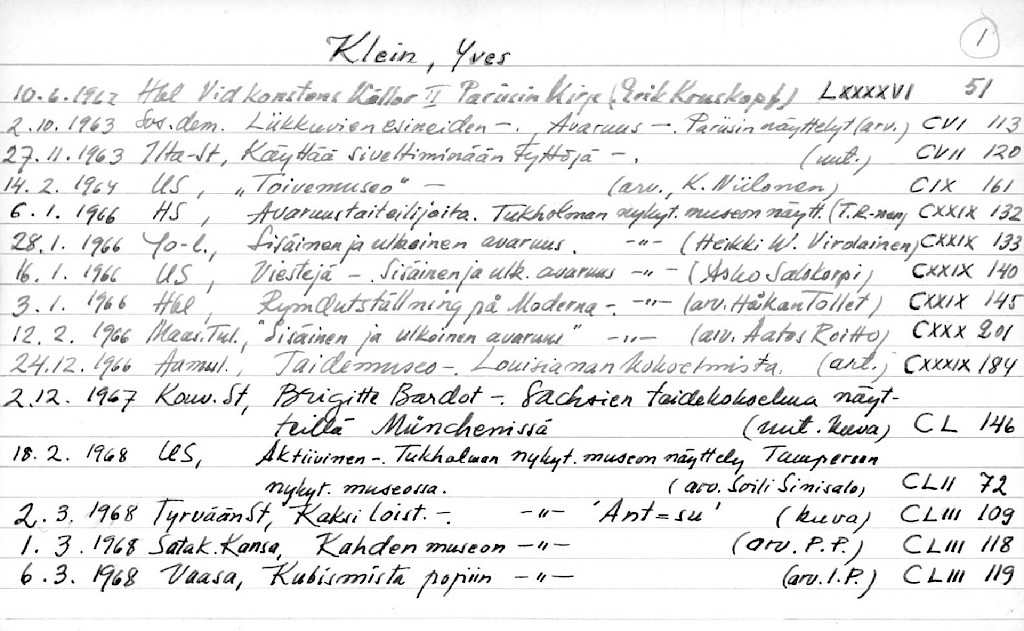 1
Klein, Yves
10.6.1962 Hbl Vid konstens källor II Pariisin kirje (Erik Kruskopf) LXXXXVI 51
2.10.1963 Sos.dem. Liikkuvien esineiden -. Avaruus -. Pariisin näyttelyt (arv.) CVI 113
27.11.1963 Ilta-St, Käyttää siveltiminään tyttöjä -. (uut.) CVII 120
14.2.1964 US, "Toivemuseo" - (arv., K. Niilonen) CIX 161
6.1.1966 HS, Avaruustaiteilijoita. Tukholman nykyt. museon näytt. (T.R-nen) CXXIX 132
28.1.1966 Yo-l., Sisäinen ja ulkoinen avaruus. -"- (Heikki W. Virolainen) CXXIX 133
16.1.1966 US, Viestejä -. Sisäinen ja ulk. avaruus -"- (Asko Salokorpi) CXXIX 140
3.1.1966 Hbl, Rymdutställning på Moderna -. -"- (arv. Håkan Tollet) CXXIX 145
12.2.1966 Maas.Tul., "Sisäinen ja ulkoinen avaruus" -"- (arv. Aatos Roitto) CXXX 201
24.12.1966 Aamul., Taidemuseo -. Louisianan kokoelmista. (art.) CXXXIX 184
2.12.1967 Kouv.St, Brigitte Bardot -. Sachsien taidekokoelma näyt-
teillä Münchenissä (uut. kuva) CL 146
18.2.1968 US, Aktiivinen -. Tukholman nykyt. museon näyttely Tampereen
nykyt. museossa. (arv. Soili Sinisalo) CLII 72
2.3.1968 TyrväänSt, Kaksi loist. -. -"- 'Ant=su' (kuva) CLIII 109
1.3.1968 Satak.Kansa, Kahden museon -"- (arv. P.P.) CLIII 118
6.3.1968 Vaasa, Kubismista popiin -"- (arv. I.P.) CLIII 119